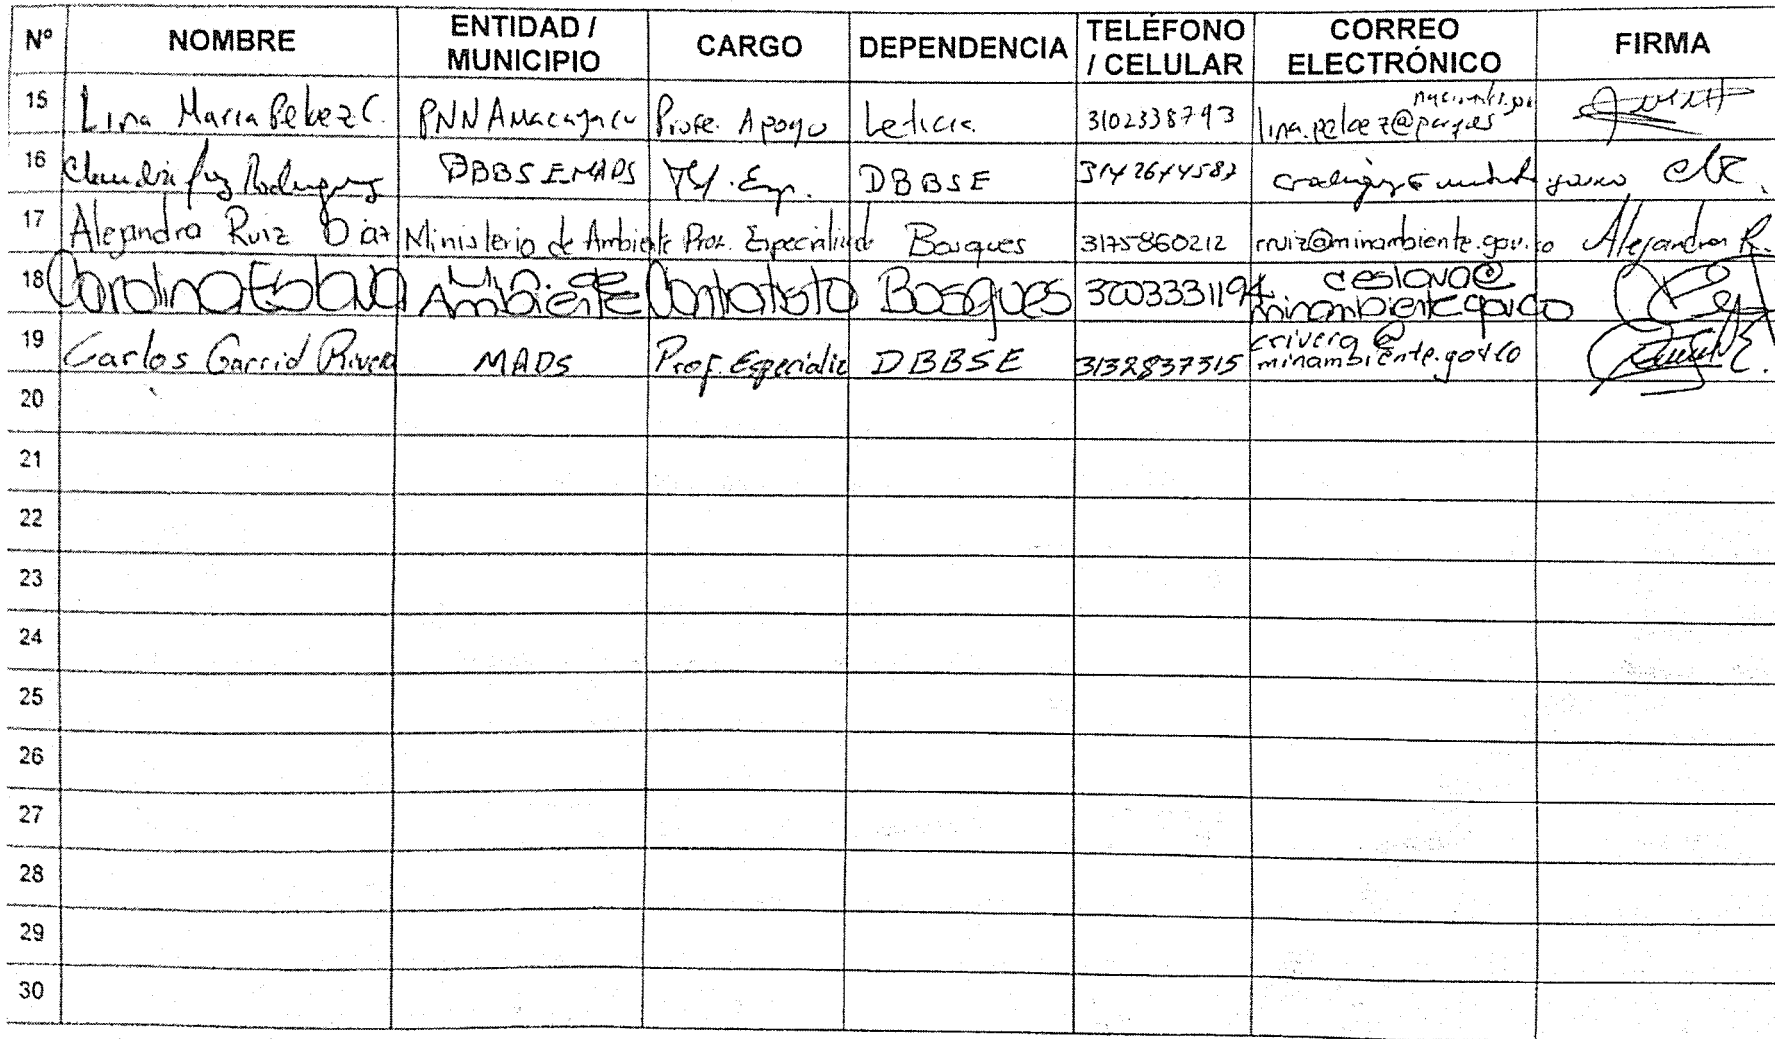 Nº NOMBRE ENTIDAD / MUNICIPIO CARGO DEPENDENCIA TELÉFONO / CELULAR CORREO ELECTRÓNICO FIRMA
15 Lina Maria Pelaez C. PNN Amacayacu Profe. Apoyo Leticia 3102338793 lina.pelaez@parques
16 Claudia Luz Rodriguez DBBSE MADS DBBSE 3142644587
17 Alejandra Ruiz Diaz Ministerio de Ambiente Prof. Especializado Bosques 3175860212 rruiz@minambiente.gov.co Alejandra R.
18 Carolina Eslava Min. de Ambiente Contratista Bosques 3003331194 ceslava@ minambiente.gov.co
19 Carlos Garrid Rivera MADS Prof. Especializ DBBSE 3132837315 crivera@ minambiente.gov.co
20
21
22
23
24
25
26
27
28
29
30